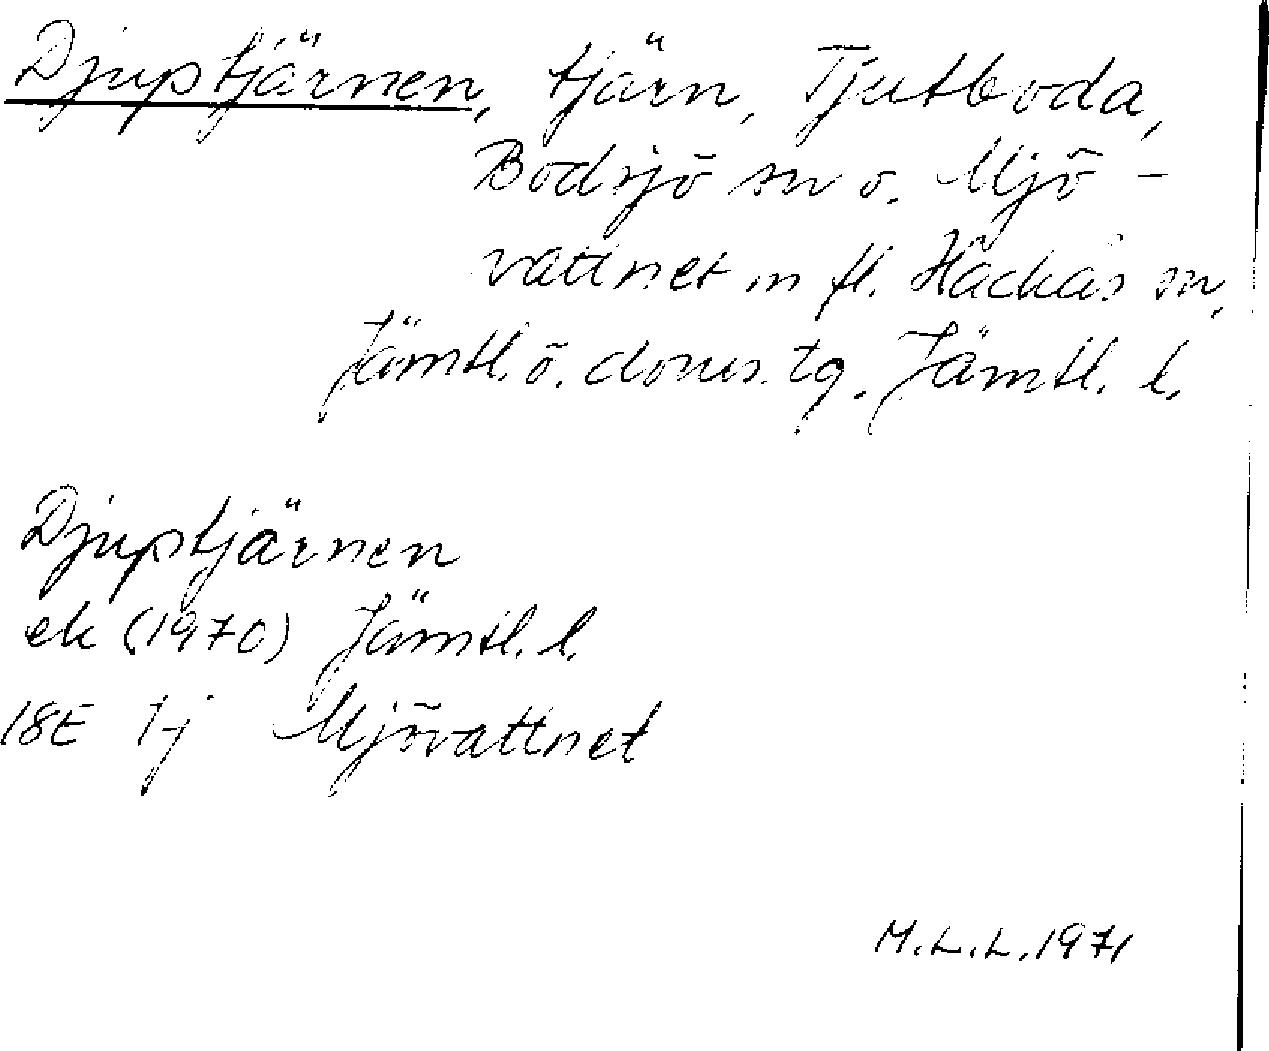 Djuptjärnen, tjärn, Tjutboda,
Bodsjö sn o. Mjö-
vattnet m fl. Hackås sn,
Jämtl. ö. doms. tg. Jämtl. l.
Djuptjärnen
ek (1970) Jämtl. l.
18E 1j Mjövattnet
M.L.L. 1971